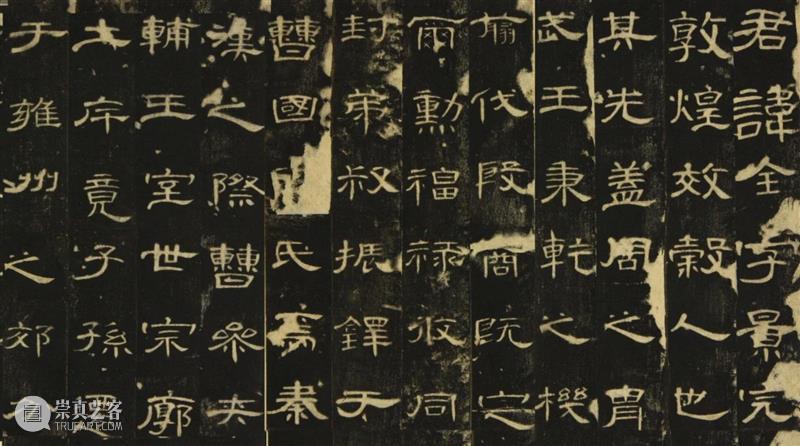 君諱全字景完
敦煌效穀人也
其先蓋周之胄
武王秉乾之機
翦伐殷商既定
爾勳福祿攸同
封弟叔振鐸于
曹國氏焉秦
漢之際曹參夾
輔王室世宗廓
土斥竟子孫
于雍州之郊
崇真艺客